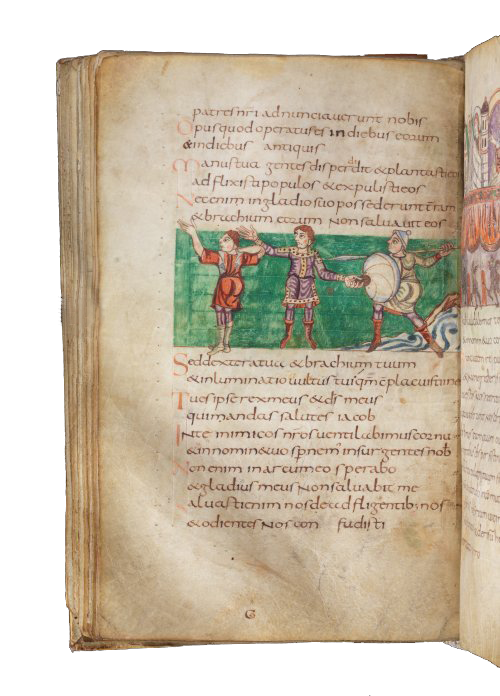 patres nri adnunciaverunt nobis
Opus quod operatus es in diebus eorum
& in diebus antiquis
Manus tua gentes disperdit & plantasti eos
adflixisti populos & expulisti eos
Nec enim in gladio suo possederunt tram
& brachium eorum Non salvabit eos
Sed dextera tua & brachium tuum
& inluminatio vultus tui qm cplacuisti in e
Tu es ipse rex meus & ds meus
qui mandas salutes iacob
In te inimicos nros ventilabimus cornu
& in nomine tuo spnem insurgentes nob
Non enim in arcu meo sperabo
& gladius meus Non salvabit me
alvasti enim nos de adfligentib; nos
& odientes Nos con fudisti
G